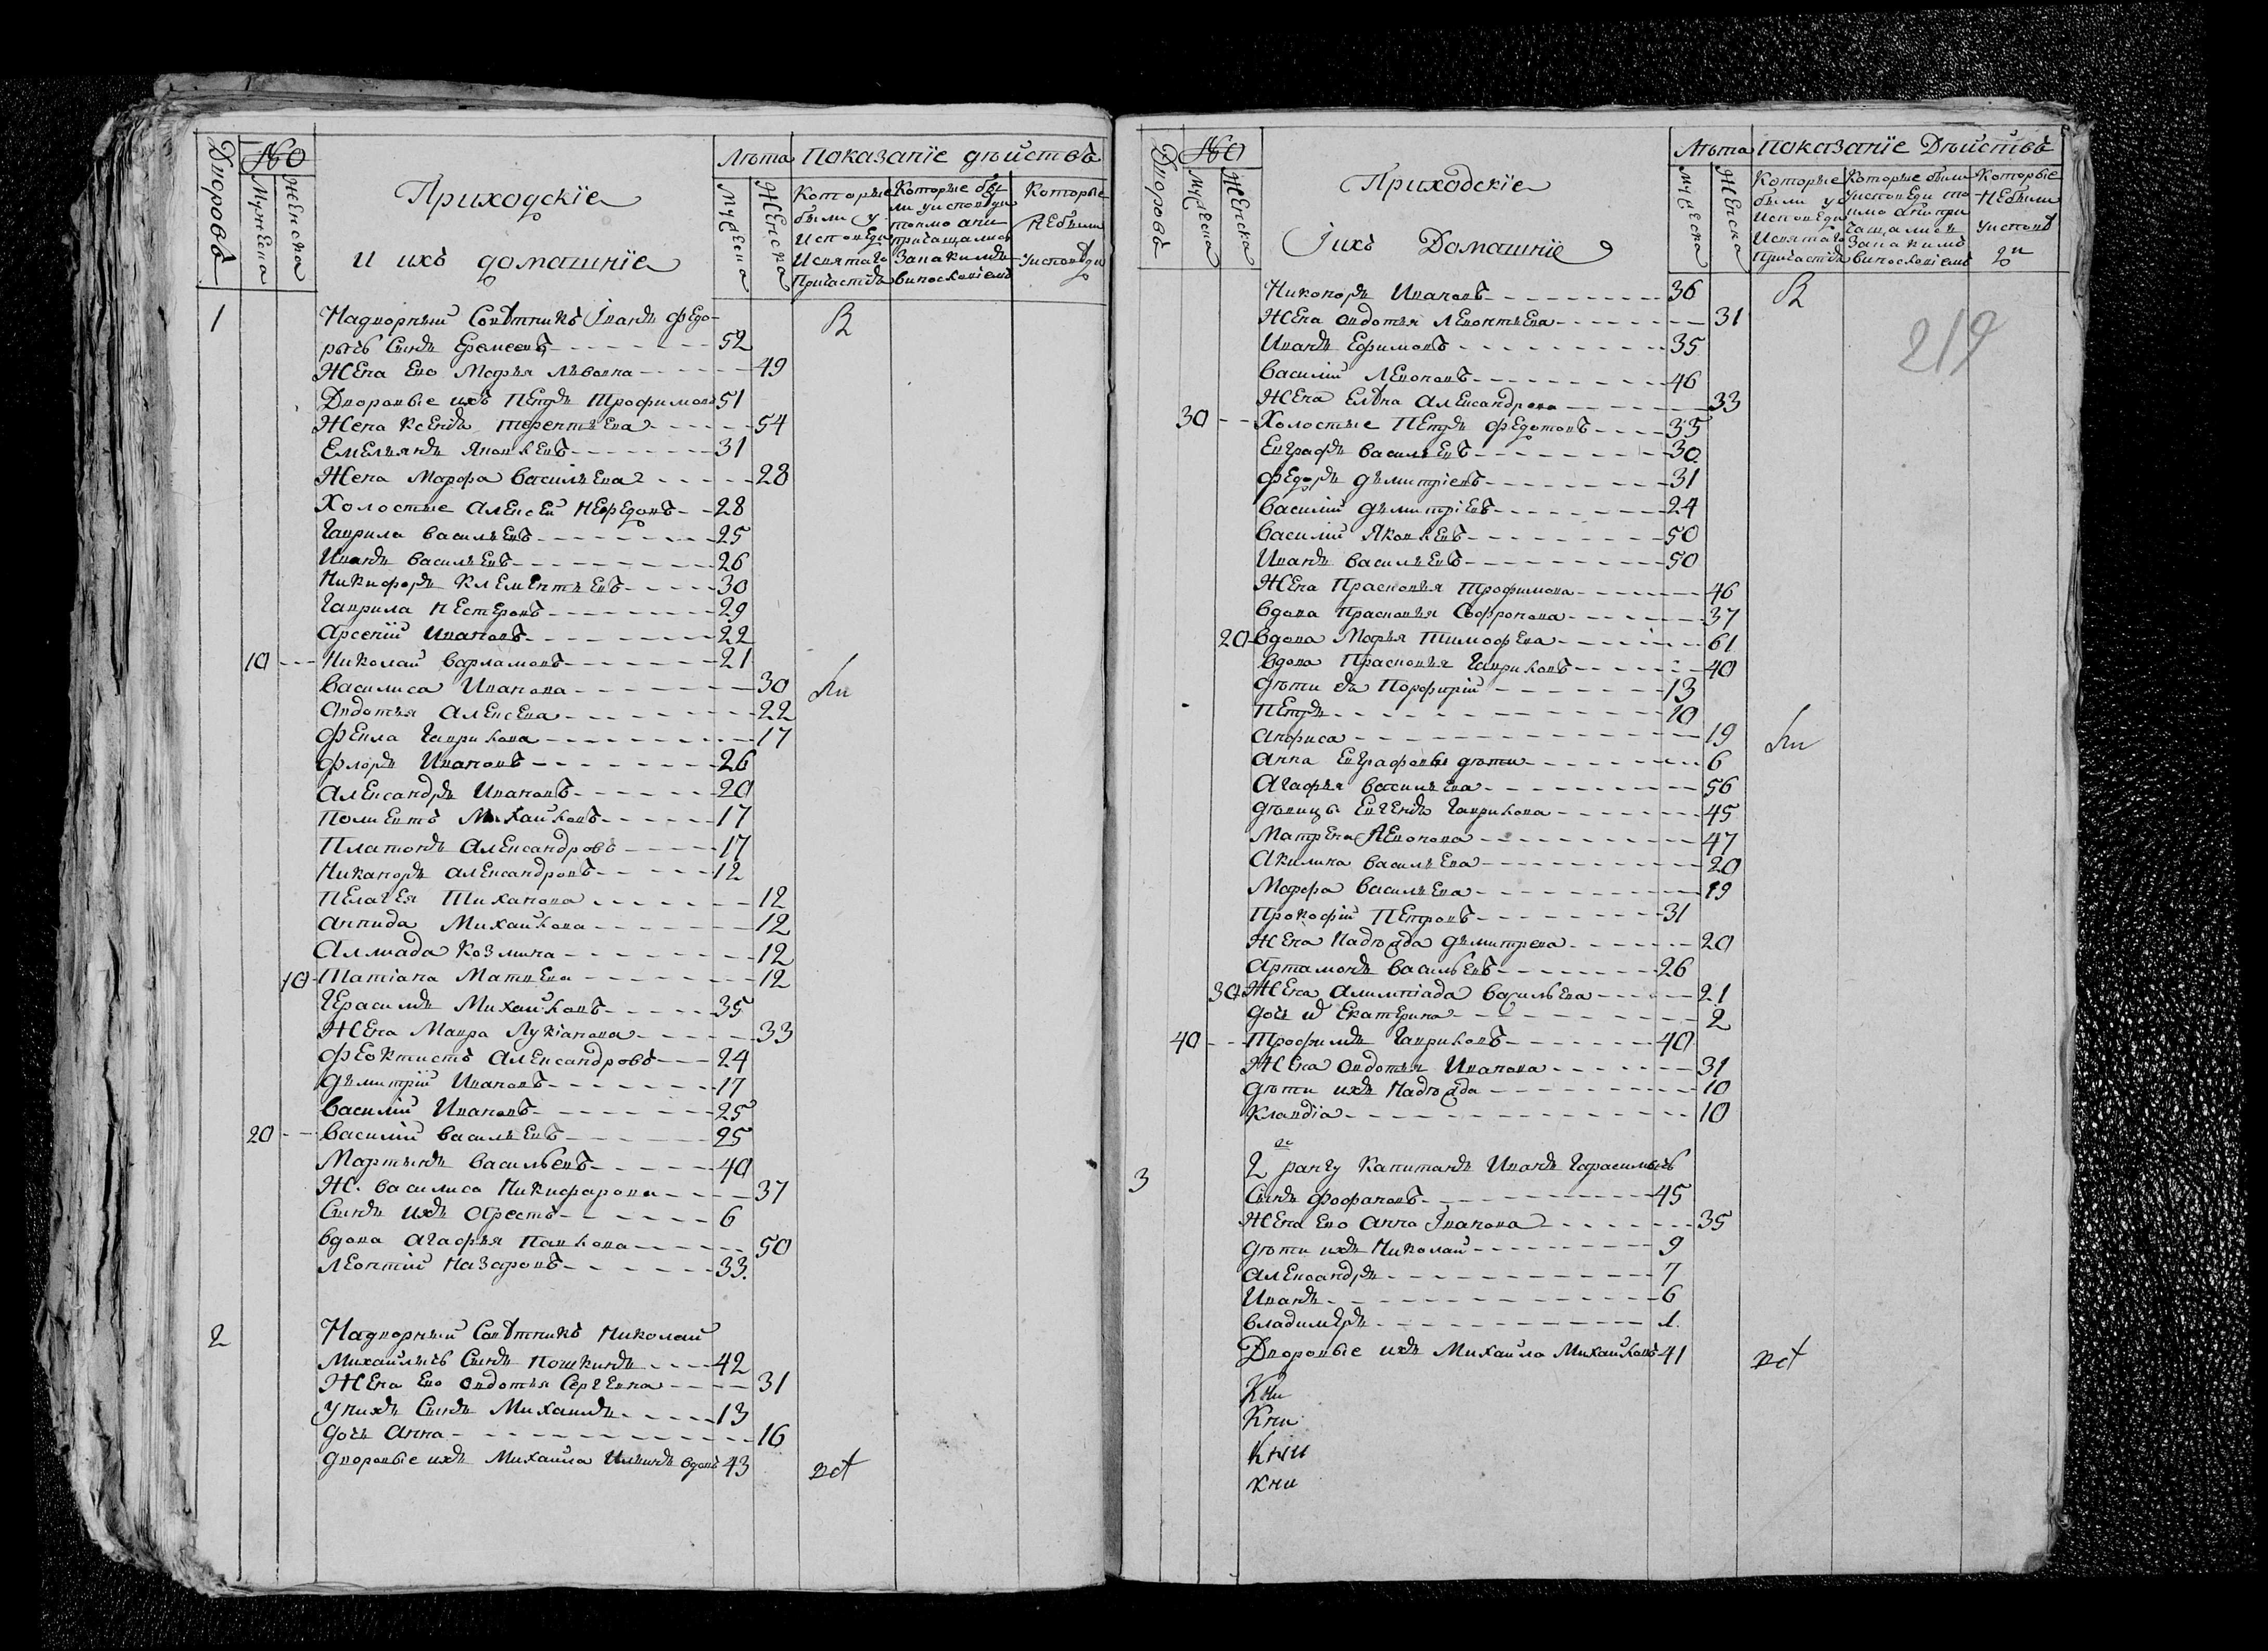 Дворовъ
№
Мужеска
Женска
Приходскiе
и ихъ домашнiе
Лѣта
Показанiе дѣйствъ
Мужеска
Женска
Которые были у исповеди и святаго Причастiя
Которые были у исповеди токмо а не причащались за какимъ винословiемъ
Которые не были у исповеди
1
Надворный Совѣтникъ Iванъ Федо-
рычь Сынъ Еремеевъ 52
Жена Ево Марья Львовна 49
Дворовые ихъ Петръ Трофимовъ 51
Жена Ксенья Терентьева 54
Емельянъ Яковлевъ 31
Жена Марфа Васильева 28
Холостые Алексей Нефедовъ 28
Гаврила Васильевъ 25
Иванъ Васильевъ 26
Никифоръ Клементьевъ 30
Гаврила Нестеровъ 29
Арсенiй Ивановъ 22
10 Николай Варламовъ 21
Василиса Иванова 30
Авдотья Алексева 22
Фекла Гаврилова 17
Флоръ Ивановъ 26
Александръ Ивановъ 20
Полиектъ Михайловъ 17
Платонъ Александровъ 17
Никаноръ Александровъ 12
Пелагея Тиханова 12
Михайлова 12
Козмина 12
10 Татiана Матвева 12
Герасимъ Михайловъ 35
Жена Мавра Лукiанова 33
Феоктистъ Александровъ 24
Дьмитрiй Ивановъ 17
Василiй Ивановъ 25
20 Василiй Васильевъ 25
Мартынъ Васильевъ 40
Ж. Василиса Никифарова 37
Сынъ ихъ Орестъ 6
Вдова Агафья Павлова 50
Леонтiй Назаровъ 33
2
Надворный Совѣтникъ Николай
Михайлычь Сынъ Пошкинъ 42
Жена Ево Овдотья Сергевна 31
У нихъ Сынъ Михаилъ 13
Дочь Анна 16
Дворовые ихъ Михаила Ильинъ вдовъ 43
Дворовъ
№
Мужеска
Женска
Приходскiе
Iихъ Домашнiе
Лѣта
Показанiе Дѣйствъ
Мужеска
Женска
Которые были у исповеди и святаго Причастiя
Которые были у исповеди токмо а не причащались за какимъ винословiемъ
Которые не были у исповеди
219
Никоноръ Ивановъ 36
Жена Овдотья Леонтьева 31
Иванъ Ефимовъ 35
Василiй Леоновъ 46
Жена Елѣна Александрова 33
30 Холостые Петръ Федотовъ 35
Евграфъ Васильевъ 30
Федоръ Дьмитрiевъ 31
Василiй Дьмитрiевъ 24
Василiй Яковлевъ 50
Иванъ Васильевъ 50
Жена Прасковья Трофимова 46
Вдова Прасковья Софронова 37
20 Вдова Марья Тимофева 61
Вдова Прасковья 40
Дѣти Порфирiй 13
Петръ 10
Анфиса 19
Анна Евграфовы дѣти 6
Агафья Васильева 56
Дѣвицы Евгенья Гаврилова 45
Матрена Леонова 47
Акилина Васильева 20
Марфа Васильева 19
Прокофiй Петровъ 31
Жена Надѣжда Дьмитрева 20
Артамонъ Васильевъ 26
30 Жена Алимпiада Васильева 21
Дочь Екатерина 2
40 Трофимъ Гавриловъ 40
Жена Овдотья Иванова 31
Дѣти ихъ Надѣжда 10
Клавдiа 10
3
2 рангу Капитанъ Иванъ Гарасимычь
Сынъ Фофановъ 45
Жена Ево Анна Iванова 35
Дѣти ихъ Николай 9
Александръ 7
Иванъ 6
Владимѣръ 1
Дворовые ихъ Михаила Михайловъ 41
Кни
Кни
Кни
Кни